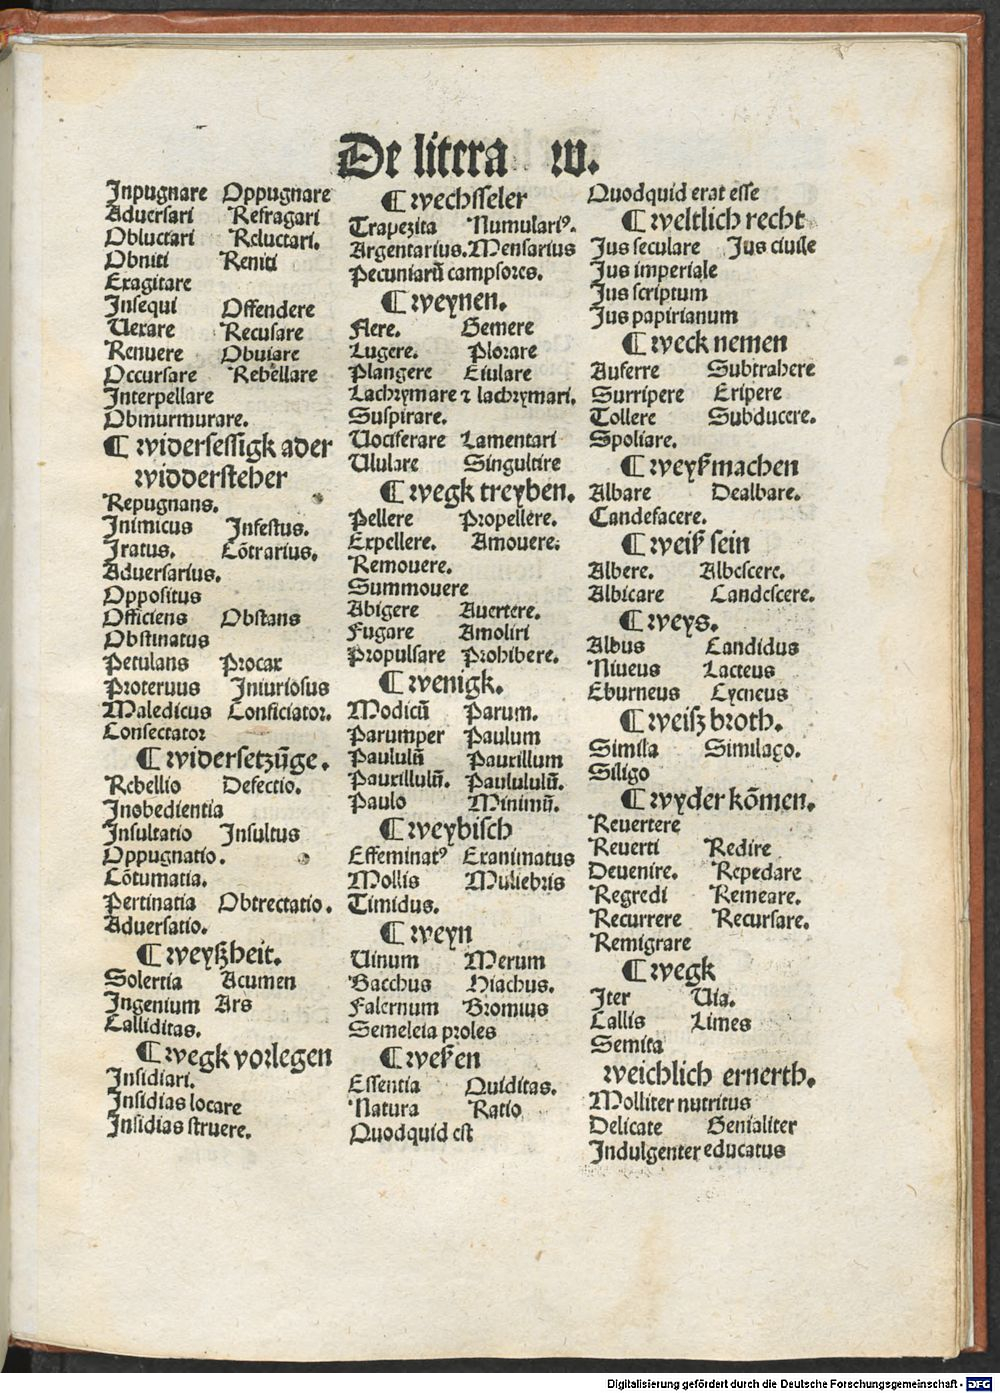 De litera w.
Inpugnare Oppugnare
Aduersari Refragari
Obluctari Reluctari.
Obniti Reniti
Exagitare
Insequi Offendere
Uexare Recusare
Renuere Obuiare
Occursare Rebellare
Interpellare
Obmurmurare.
¶ widersessigk ader
widdersteher
Repugnans.
Inimicus Infestus.
Iratus. Cōtrarius.
Aduersarius.
Oppositus
Officiens Obstans
Obstinatus
Petulans Procax
Proteruus Iniuriosus
Maledicus Conficiator.
Consectator
¶ widersetzūge.
Rebellio Defectio.
Inobedientia
Insultatio Insultus
Oppugnatio.
Cōtumatia.
Pertinatia Obtrectatio.
Aduersatio.
¶ weyßheit.
Solertia Acumen
Ingenium Ars
Calliditas.
¶ wegk vorlegen
Insidiari.
Insidias locare
Insidias struere.
¶ wechsseler
Trapezita Numulariꝰ.
Argentarius. Mensarius
Pecuniarū campsores.
¶ weynen.
Flere. Gemere
Lugere. Plorare
Plangere Eiulare
Lachrymare ⁊ lachrymari.
Suspirare.
Uociferare Lamentari
Ululare Singultire
¶ wegk treyben.
Pellere Propellere.
Expellere. Amouere.
Remouere.
Summouere
Abigere Auertere.
Fugare Amoliri
Propulsare Prohibere.
¶ wenigk.
Modicū Parum.
Parumper Paulum
Paululū Pauxillum
Pauxillulū. Paulululū.
Paulo Minimū.
¶ weybisch
Effeminatꝰ Exanimatus
Mollis Muliebris
Timidus.
¶ weyn
Uinum Merum
Bacchus Hiachus.
Falernum Bromius
Semeleia proles
¶ weßen
Essentia Quiditas.
Natura Ratio
Quodquid est
Quodquid erat esse
¶ weltlich recht
Jus seculare Jus ciuile
Jus imperiale
Jus scriptum
Jus papirianum
¶ weck nemen
Auferre Subtrahere
Surripere Eripere
Tollere Subducere.
Spoliare.
¶ weyß machen
Albare Dealbare.
Candefacere.
¶ weiß sein
Albere. Albescere.
Albicare Candescere.
¶ weys.
Albus Candidus
Niueus Lacteus
Eburneus Cycneus
¶ weiß broth.
Simila Similago.
Siligo
¶ wyder kōmen.
Reuertere
Reuerti Redire
Deuenire. Repedare
Regredi Remeare.
Recurrere Recursare.
Remigrare
¶ wegk
Iter Uia.
Callis Limes
Semita
weichlich ernerth.
Molliter nutritus
Delicate Genialiter
Indulgenter educatus
Digitalisierung gefördert durch die Deutsche Forschungsgemeinschaft - DFG